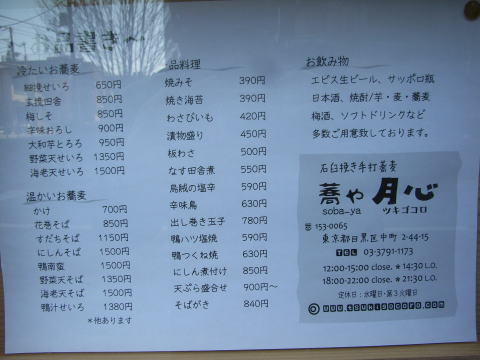 お品書き
冷たいお蕎麦
細挽せいろ 650円
玄挽田舎 850円
梅しそ 850円
辛味おろし 900円
大和芋とろろ 950円
野菜天せいろ 1350円
海老天せいろ 1500円
温かいお蕎麦
かけ 700円
花巻そば 850円
すだちそば 1150円
にしんそば 1500円
鴨南蛮 1500円
野菜天そば 1350円
海老天そば 1500円
鴨汁せいろ 1380円
*他あります
一品料理
焼みそ 390円
焼き海苔 390円
わさびいも 420円
漬物盛り 450円
板わさ 500円
なす田舎煮 550円
烏賊の塩辛 590円
辛味鳥 630円
出し巻き玉子 780円
鴨ハツ塩焼 590円
鴨つくね焼 630円
にしん煮付け 850円
天ぷら盛合せ 900円〜
そばがき 840円
お飲み物
エビス生ビール、サッポロ瓶
日本酒、焼酎/芋・麦・蕎麦
梅酒、ソフトドリンクなど
多数ご用意致しております。
石臼挽き手打蕎麦
蕎や 月心
soba-ya ツキゴコロ
〒153-0065
東京都目黒区中町 2-44-15
TEL 03-3791-1173
12:00-15:00 close. *14:30 L.O.
18:00-22:00 close. *21:30 L.O.
定休日：水曜日・第3火曜日
www.tsukigocoro.com